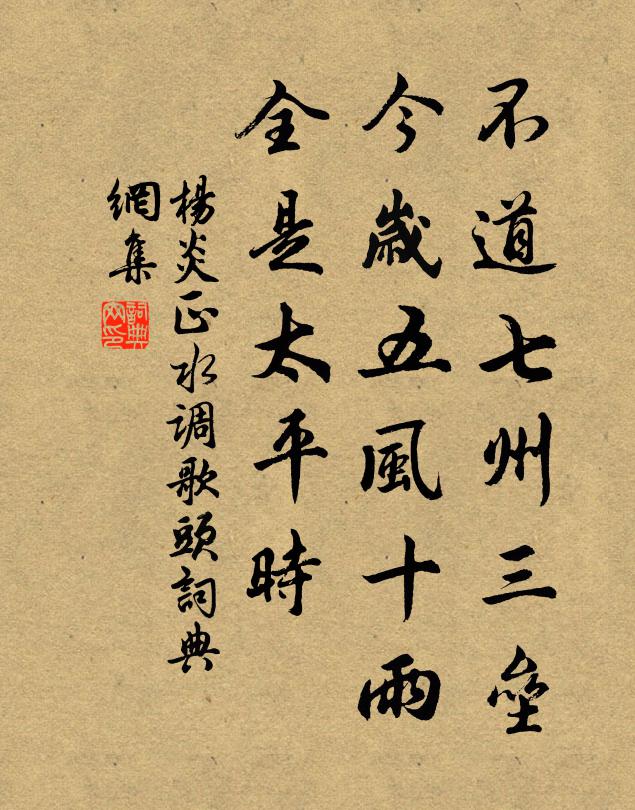 不道七州三壘
今歲五風十雨
全是太平時
楊炎正水調歌頭詞典
網集
詞典
网印